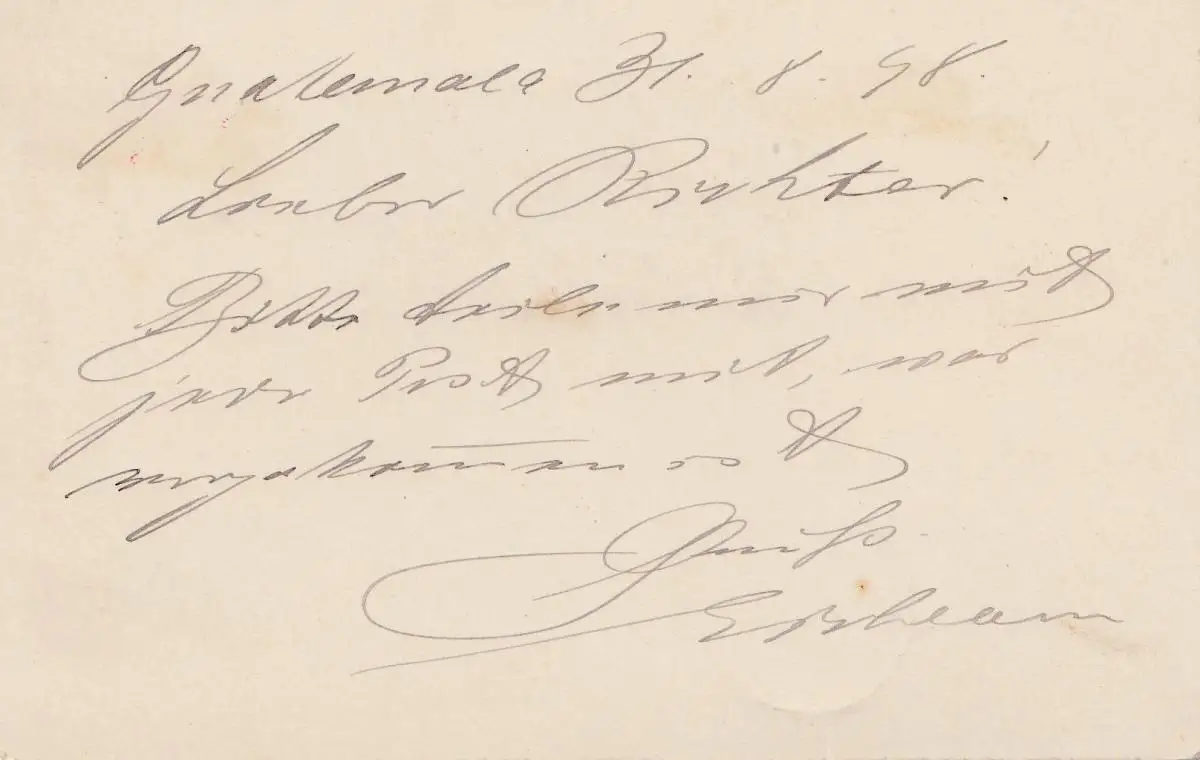 Guatemala 31. 8. 98.
Lieber Richter!
Bitte teile mir mit
jeder Post mit, was
vorgekommen ist
Gruß.